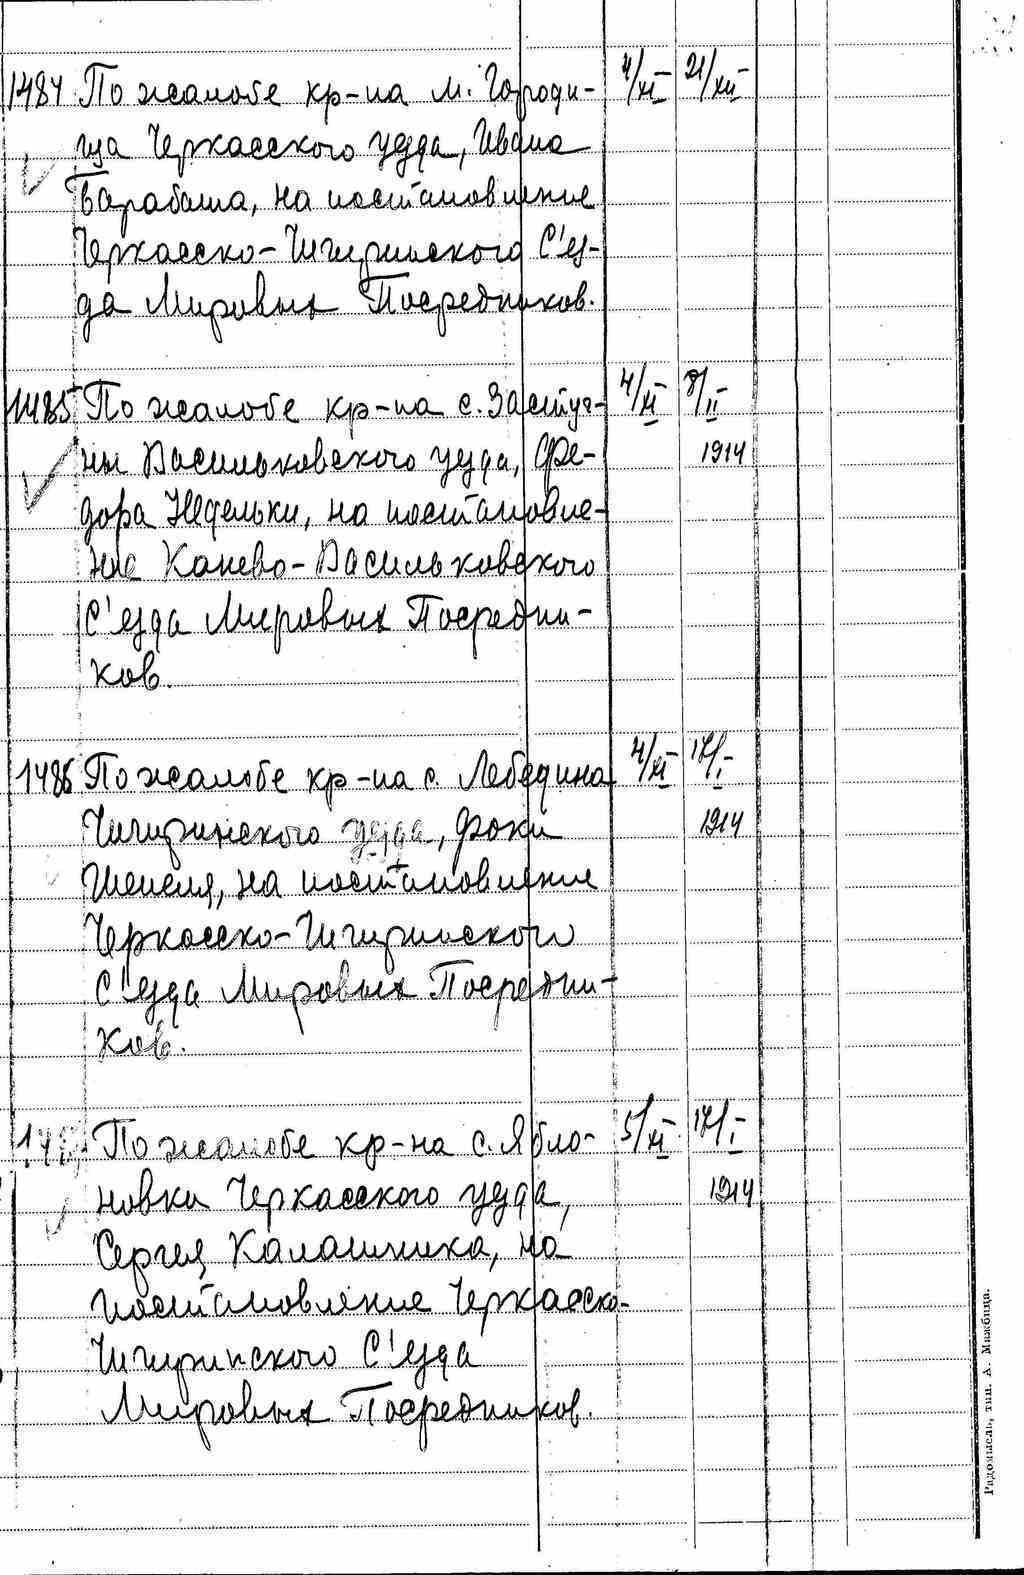 1484 По жалобе кр-на м. Городи- 4/XI 21/XII
ща Черкасского уезда, Ивана
Барабаша, на постановление
Черкасско-Чигиринского С'ез-
да Мировых Посредников.
1485 По жалобе кр-на с. Застуг- 4/XI 8/II
ны Васильковского уезда, Фе- 1914
дора Недельки, на постановле-
ние Канево-Васильковского
С'езда Мировых Посредни-
ков.
1486 По жалобе кр-на с. Лебедина 4/XI 17/I
Чигиринского уезда, Фоки 1914
Шепеля, на постановление
Черкасско-Чигиринского
С'езда Мировых Посредни-
ков.
По жалобе кр-на с. Ябло- 5/XI 17/I
новки Черкасского уезда, 1914
Сергея Калашника, на
постановление Черкасско-
Чигиринского С'езда
Мировых Посредников.
Радомысль, тип. А. Мижбица.